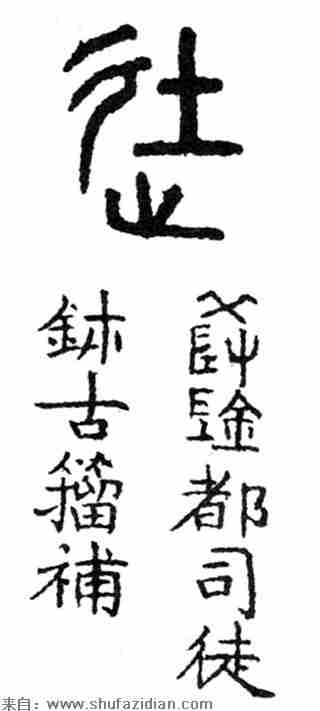 徒
都司徒
古籀補
来自：www.shufazidian.com